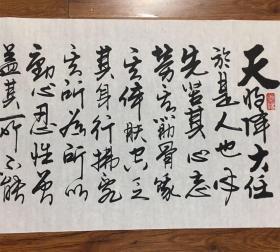 天将降大任
於是人也必
先苦其心志
劳其筋骨餓
其体肤空乏
其身行拂乱
其所为所以
動心忍性曾
益其所不能